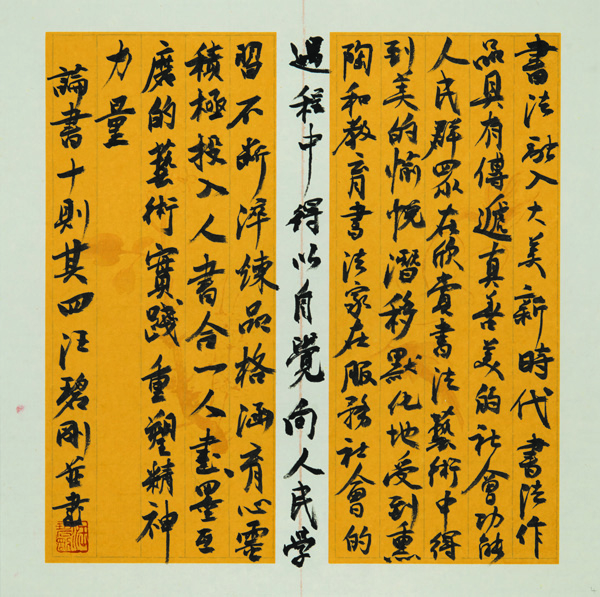 書法融入大美新時代書法作
品具有傳遞真善美的社會功能
人民群眾在欣賞書法藝術中得
到美的愉悅潛移默化地受到熏
陶和教育書法家在服務社會的
過程中得以自覺向人民學
習不斷淬練品格涵育心靈
積極投入人書合一人書墨互
磨的藝術實踐重塑精神
力量
論書十則其四汪碧剛並書